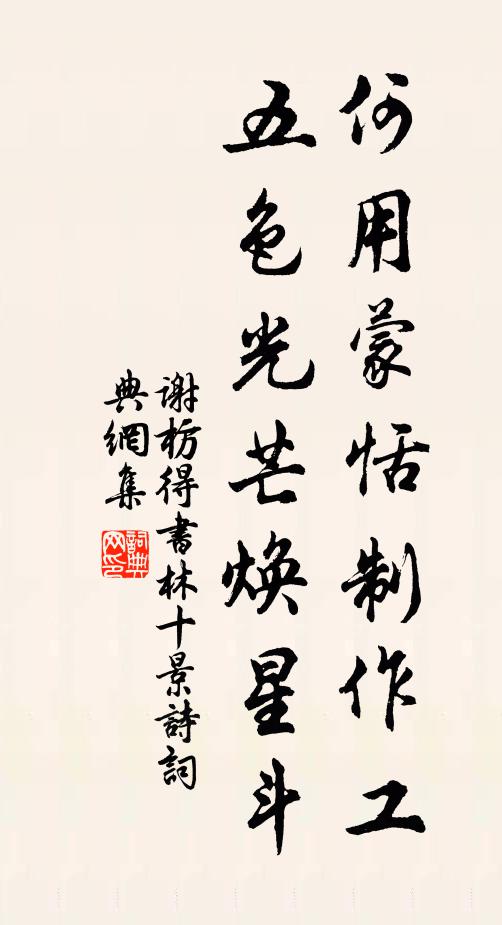 何用蒙恬制作工
五色光芒焕星斗
謝枋得書林十景詩詞
典網集
詞典
网印